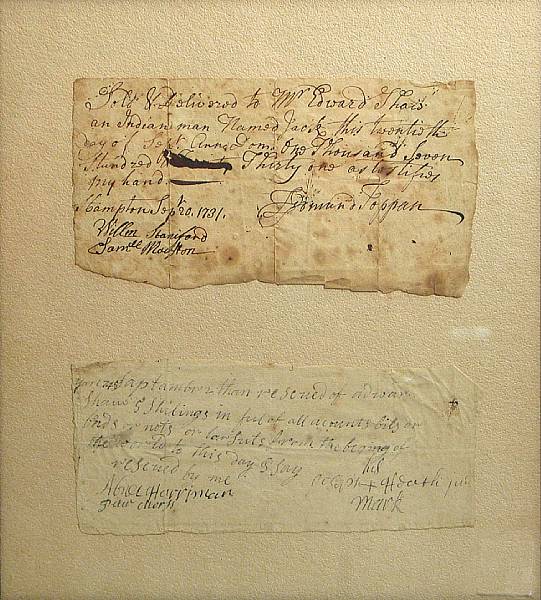 Sold & Delivered to Mr Edward Shaw
an Indian man Named Jack this twentieth
day of Sept Anno Dom: One Thousand Seven
Hundred Thirty one as testifies
my hand
Hampton Sepr 20. 1731.
Edmund Toppan
Willm Stanford
Samll Marston
Saptambr 2 than reseued of adward
Shaw 5 Shilings in ful of all acounts bils or
bnds or nots or lawsuts from the begining of
the to this day I say
reseued by me his
Heath
Abiel Harriman mark